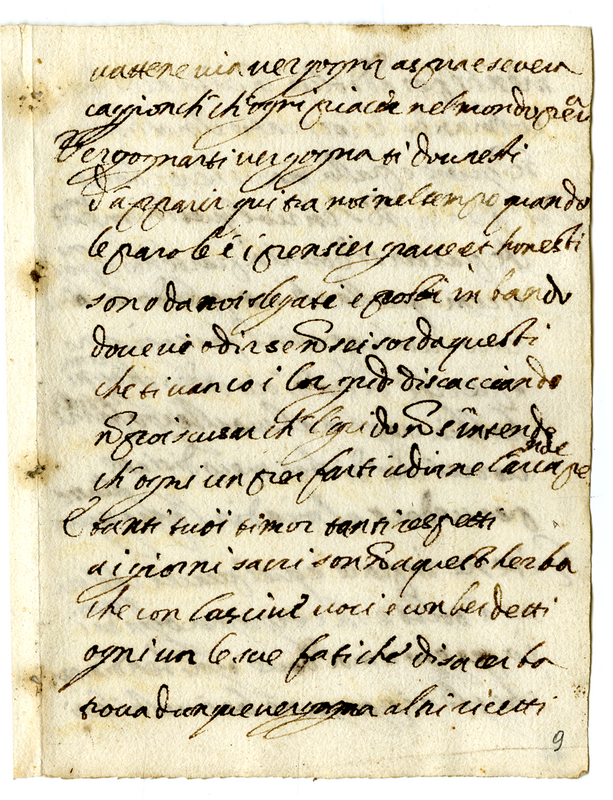 vattene via vergogna aspra e severa
caggion ch ch'ogni piacer nel mondo pera
Vergognarti vergogna ti dovresti
d'apparir qui tra noi nel tempo quando
le parole e i pensier grave et honesti
sono da noi slegati e posti in bando
dovevi odir se nõ sei sorda questi
che ti van co i lor gridi discacciando
nõ poi scusar ch'l grido nõ s'intende
ch'ogni un per farti udir ne l'aria pende
E tanti tuoi timor tanti respetti
a i giorni sacri son nõ a quest'herba
che con lascive voci e con bei detti
ogni un le sue fatiche disacerba
trova dunque vergogna altri ricetti
9